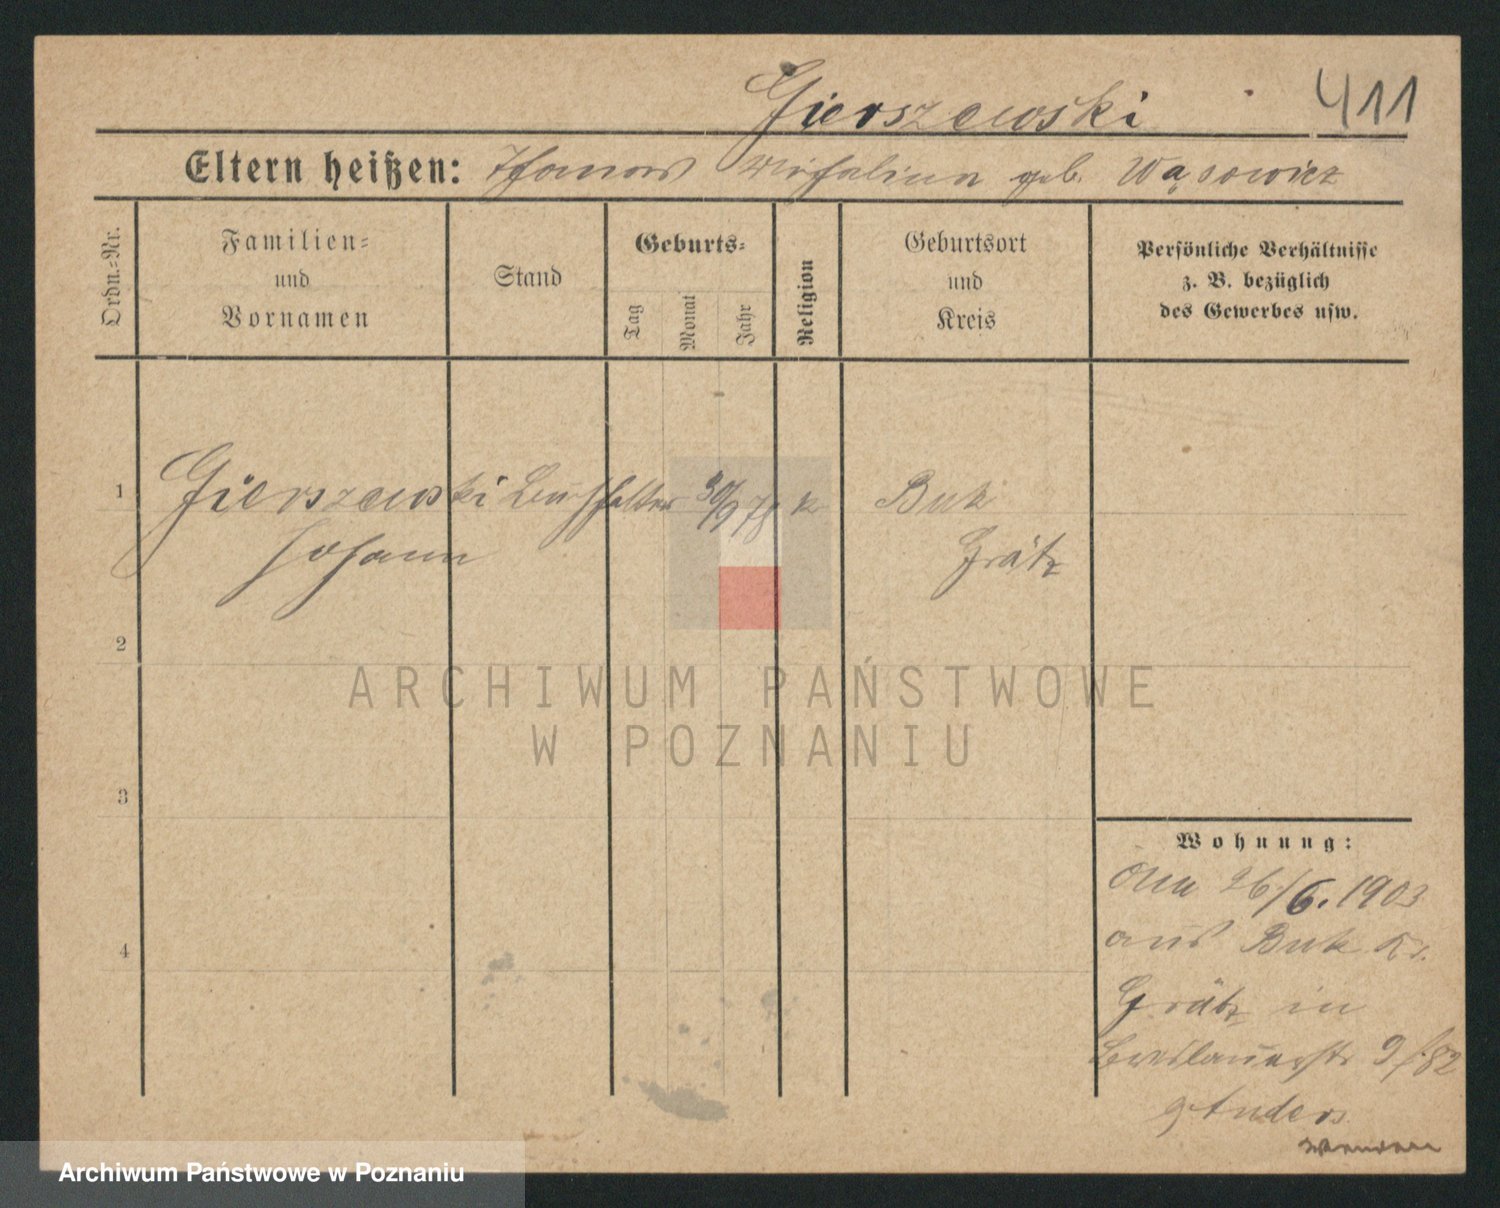 Gierszewski 411
Eltern heißen: Thomas geb. Wąsowicz
Ordn.-Nr.
Familien-
und
Vornamen
Stand
Geburts-
Tag
Monat
Jahr
Religion
Geburtsort
und
Kreis
Persönliche Verhältnisse
z. B. bezüglich
des Gewerbes usw.
1 Gierszewski Buchhalter 30/9 78 k Buk
Johann Grätz
2
3
4
Wohnung:
26/6. 1903
aus Buk Krs.
Grätz in
Breslauerstr 9
ARCHIWUM PAŃSTWOWE
W POZNANIU
Archiwum Państwowe w Poznaniu